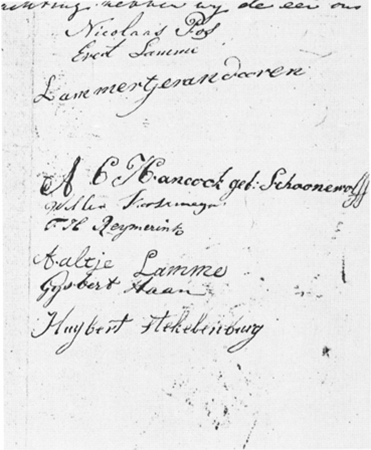 hebben wy de eer ons
Nicolaas Pos
Evert Lamme
Lammertje van Dooren
A C Hancock geb: Schoonewolff
Willem
C. H. Reymerink
Aaltje Lamme
Gysbert Haan
Huybert Stekelenburg